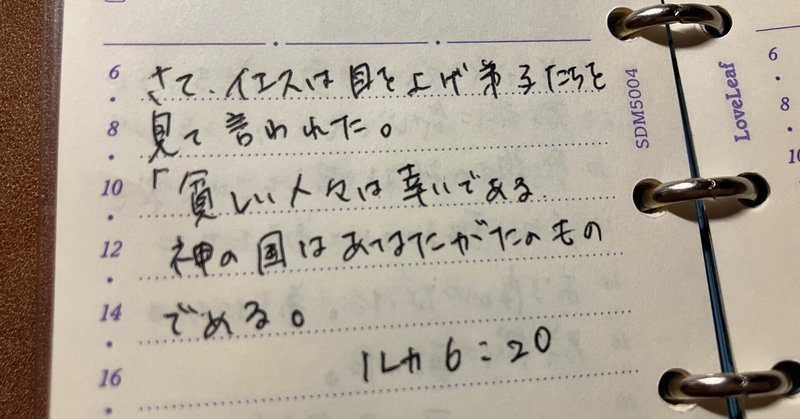 6 さて、イエスは目を上げ弟子たちを
8 見て言われた。
10 「貧しい人々は幸いである
12 神の国はあなたがたのもの
14 である。
16 ルカ6:20
SDM5004
LoveLeaf
6
8
10
12